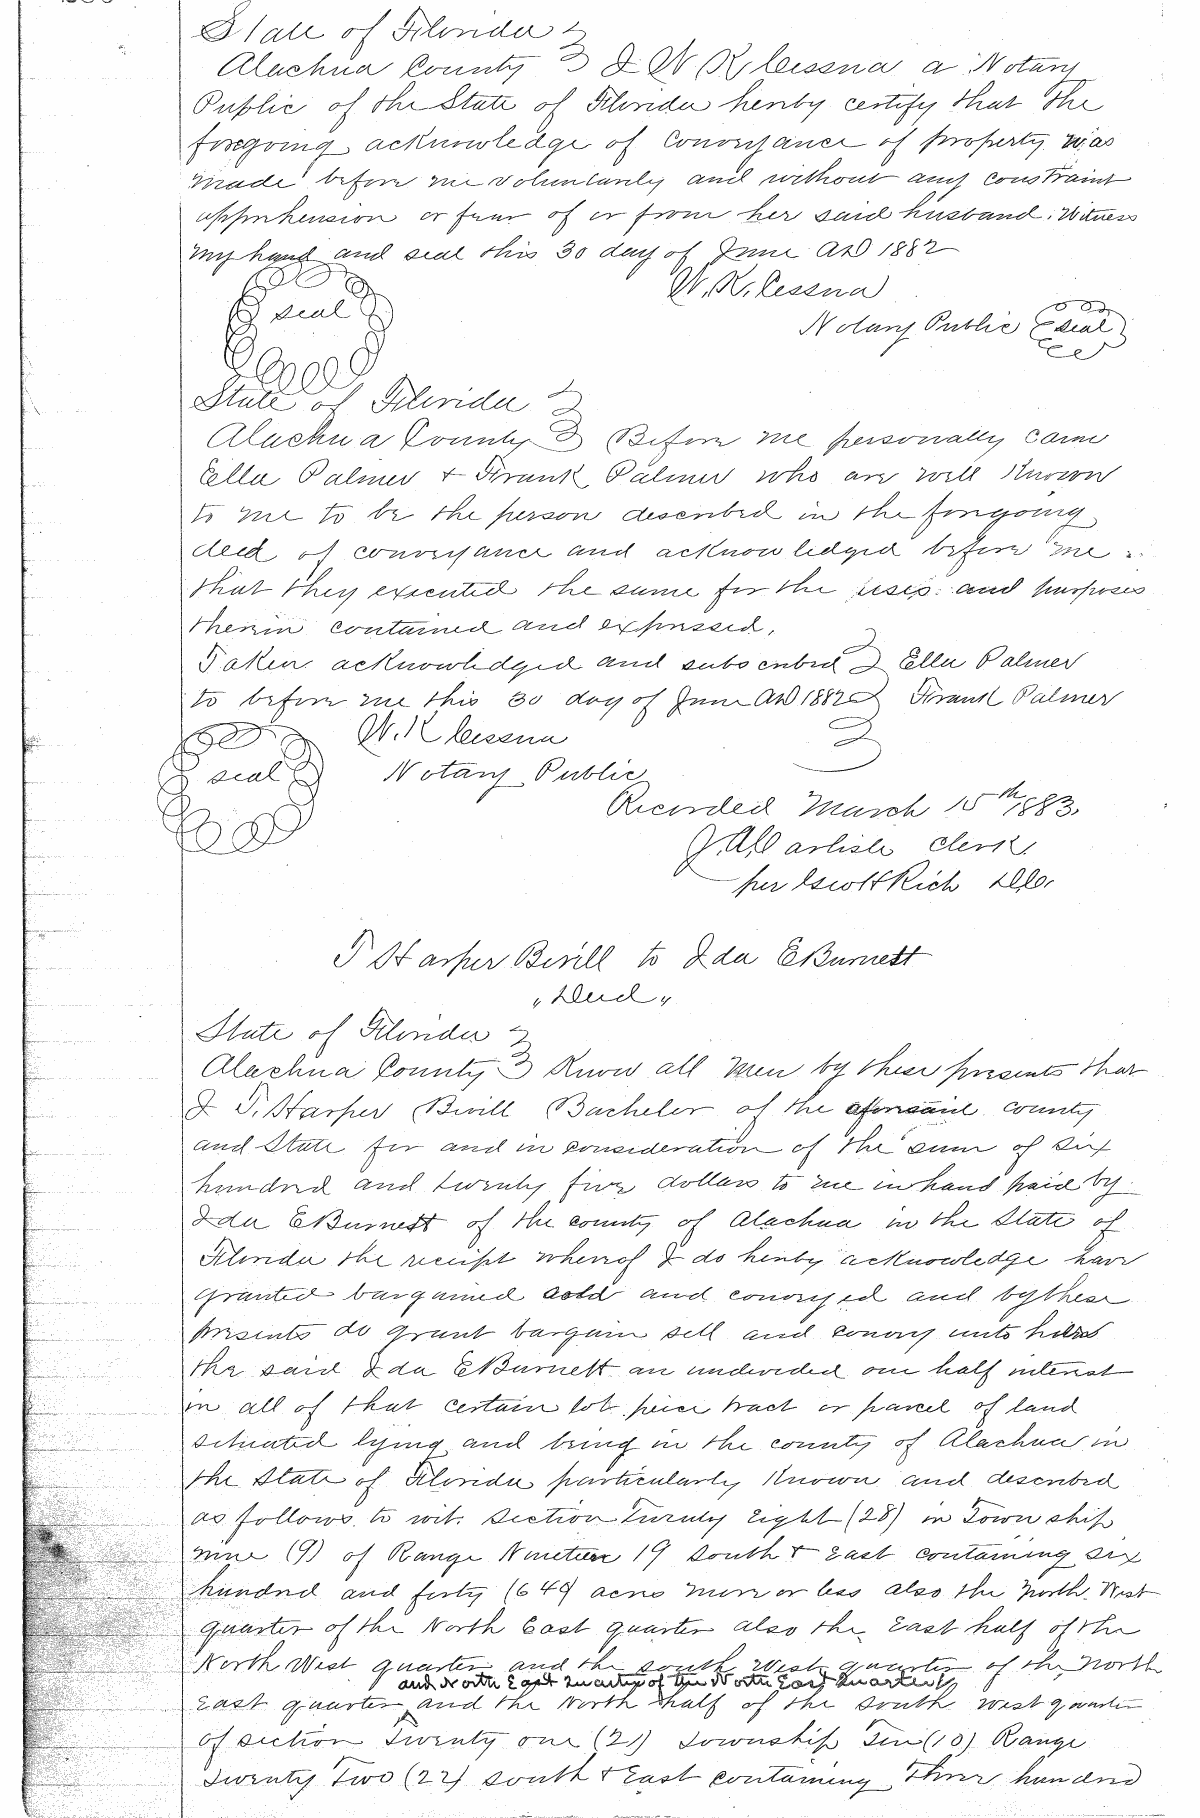 State of Florida
Alachua County I W R Cessna a Notary
Public of the State of Florida hereby certify that the
foregoing acknowledge of Conveyance of property was
made before me voluntarily and without any constraint
apprehension or fear of or from her said husband. Witness
my hand and seal this 30 day of June AD 1882
W. R. Cessna
seal
Notary Public seal
State of Florida
Alachua County Before me personally came
Ella Palmer + Frank Palmer who are well Known
to me to be the person described in the foregoing
deed of conveyance and acknowledged before me
that they executed the same for the uses and purposes
therein contained and expressed,
Taken acknowledged and subscribed Ella Palmer
to before me this 30 day of June AD 1882 Frank Palmer
W. R Cessna
seal Notary Public
Recorded March 15th 1883.
J. A. Carlisle Clerk.
per Rich
T Harper Bevill to Ida E Burnett
"Deed"
State of Florida
Alachua County Know all Men by these presents that
I T. Harper Bevill Bachelor of the aforesaid county
and State for and in consideration of the sum of Six
hundred and twenty five dollars to me in hand paid by
Ida E Burnett of the county of Alachua in the State of
Florida the receipt whereof I do hereby acknowledge have
granted bargained sold and conveyed and by these
presents do grant bargain sell and convey unto
the said Ida E Burnett an undivided one half interest
in all of that certain lot piece tract or parcel of land
situated lying and being in the county of Alachua in
the State of Florida particularly Known and described
as follows to wit: Section Twenty Eight (28) in Town ship
nine (9) of Range Nineteen 19 South + East containing six
hundred and forty (640) acres more or less also the North West
quarter of the North East quarter also the East half of the
North West quarter and the south West quarter of the North
and North East Quarter of the North East Quarter
East quarter and the North half of the South west quarter
of section Twenty one (21) Township Ten (10) Range
Twenty Two (22) South + East containing Three hundred